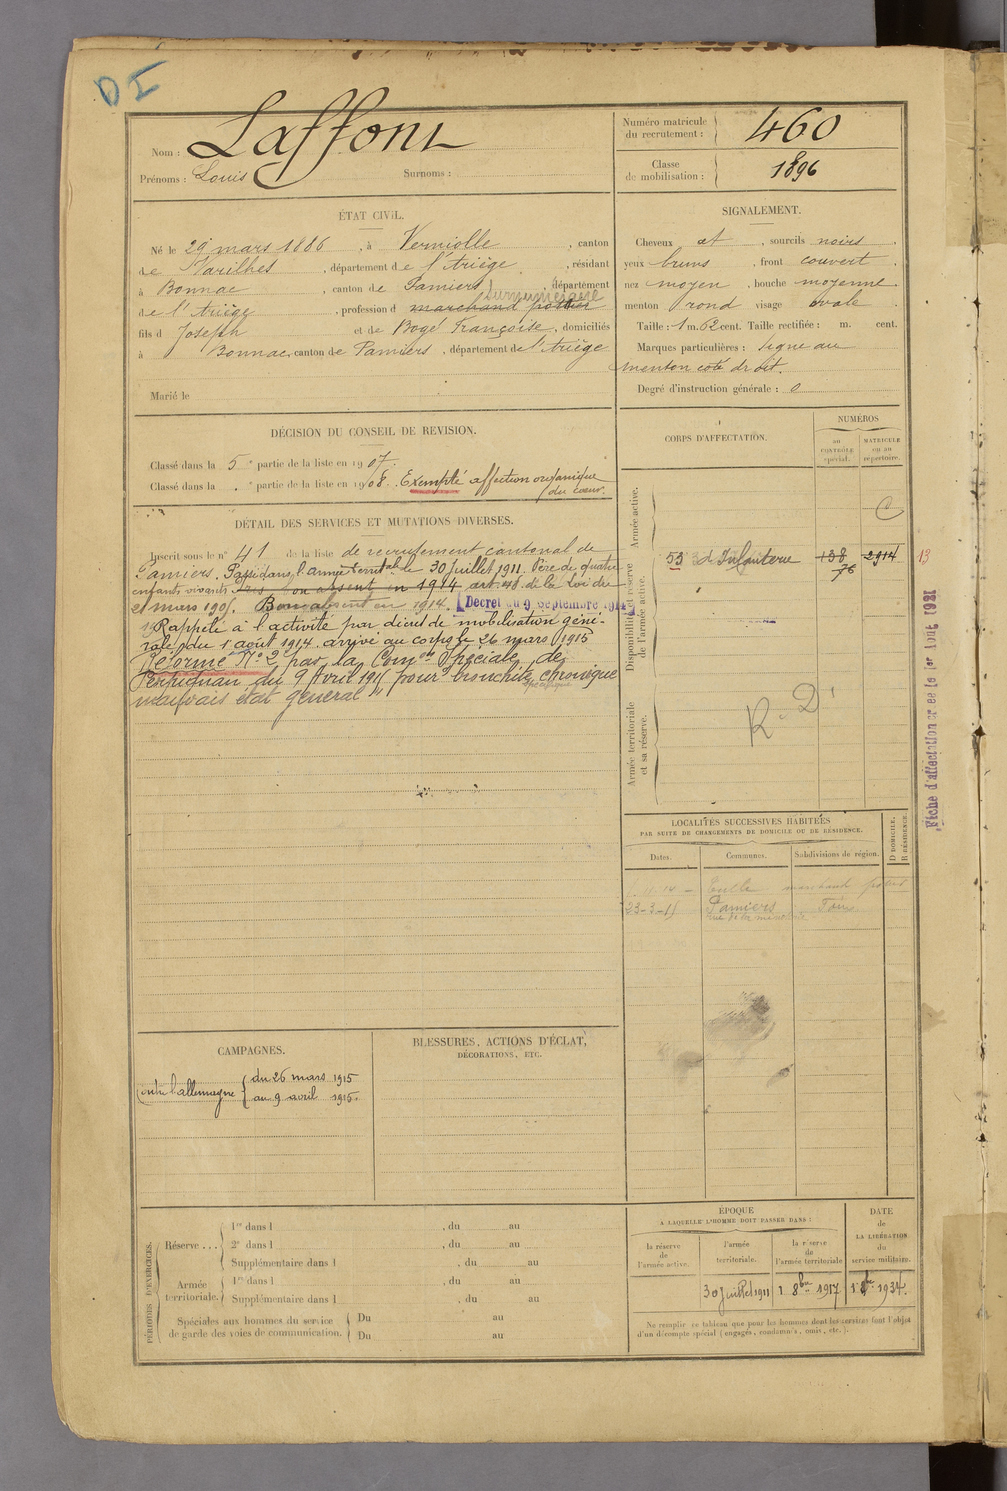 DI
Nom : Laffont
Prénoms : Louis Surnoms :
Numéro matricule du recrutement : 460
Classe de mobilisation : 1896
ÉTAT CIVIL.
Né le 29 mars 1886, à Verniolle, canton
de Varilhes, département de l'Ariège, résidant
à Bonnac, canton de Pamiers, département
de l'Ariège, profession d marchand
fils d Joseph et de Bogé Françoise, domiciliés
à Bonnac, canton de Pamiers, département de l'Ariège
Marié le
SIGNALEMENT.
Cheveux et, sourcils noirs
yeux bruns, front couvert
nez moyen, bouche moyenne
menton rond visage ovale
Taille : 1 m. 62 cent. Taille rectifiée : m. cent.
Marques particulières : signe au
menton coté droit.
Degré d'instruction générale : 0
DÉCISION DU CONSEIL DE REVISION.
Classé dans la 5e partie de la liste en 1907.
Classé dans la . e partie de la liste en 1908. Exempté affection organique
du cœur.
DÉTAIL DES SERVICES ET MUTATIONS DIVERSES.
Inscrit sous le n° 41 de la liste de recrutement cantonal de
Pamiers. Passé dans l'armée territle le 30 juillet 1911. Père de quatre
enfants vivants absent en 1914 art. 48 de la loi du
21 mars 1905. Bon absent en 1914. [Décret du 9 Septembre 1914]
Rappelé à l'activité par décret de mobilisation géné-
rale du 1 août 1914. arrivé au corps le 26 mars 1915
Réformé N° 2 par la Comon Spéciale de
Perpignan du 9 Avril 1915 pour "bronchite chronique
spécifique
mauvais état général"
CORPS D'AFFECTATION.
NUMÉROS
au CONTRÔLE spécial.
MATRICULE ou au répertoire.
Armée active.
C
Disponibilité et réserve de l'armée active.
53 d'Infanterie 138 2914 13
76
Armée territoriale et sa réserve.
R. 2
Fiche d'affectation créée le 1er Août 1921
LOCALITÉS SUCCESSIVES HABITÉES
PAR SUITE DE CHANGEMENTS DE DOMICILE OU DE RÉSIDENCE.
Dates. Communes. Subdivisions de région. D DOMICILE. R RÉSIDENCE.
Tulle marchand
23-3-15 Pamiers Foix
rue de la
CAMPAGNES.
contre l'allemagne { du 26 mars 1915
au 9 avril 1915.
BLESSURES, ACTIONS D'ÉCLAT,
DÉCORATIONS, ETC.
PÉRIODES D'EXERCICES.
Réserve ... 1re dans l , du au
2e dans l , du au
Supplémentaire dans l , du au
Armée territoriale. 1re dans l , du au
Supplémentaire dans l , du au
Spéciales aux hommes du service de garde des voies de communication. Du au
Du au
ÉPOQUE
A LAQUELLE L'HOMME DOIT PASSER DANS :
la réserve de l'armée active.
l'armée territoriale.
la réserve de l'armée territoriale
DATE de LA LIBÉRATION du service militaire.
30 juillet 1911 1 8bre 1917 1 8bre 1934.
Ne remplir ce tableau que pour les hommes dont les services font l'objet
d'un décompte spécial (engagés, condamnés, omis, etc.).